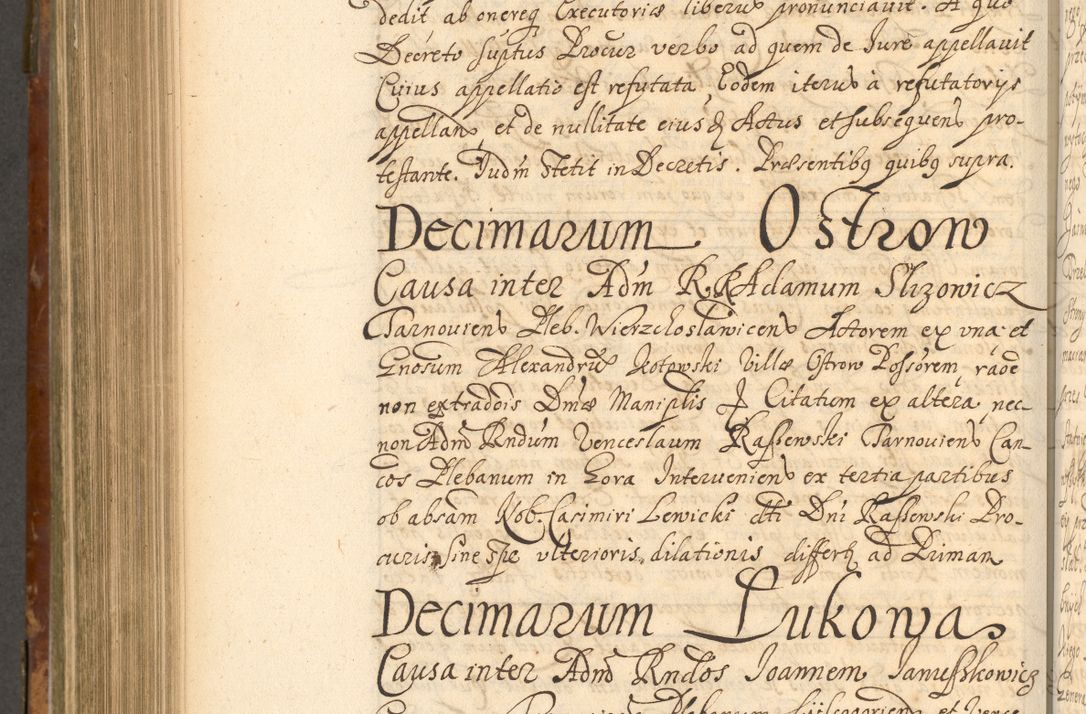 dedit ab onereq Executoriæ liberus pronunciavit. A quo
Decreto suptus Procur verbo ad quem de Jure appellavit
Cuius appellatio est refutata, Eodem iterus à refutatorijs
appellans et de nullitate eiusq Actus et subsequens pro-
testante. Judm stetit in Decretis. Præsentibq quibq supra.
Decimarum Ostrow
Causa inter Adm R.R Adamum Slizowicz
Tarnouiens Pleb. Wierzchoslawicens Actorem ex vna et
Gnosum Alexandrũ Kotowski Villæ Ostrow Possorem, raõe
non extradõis Dmæ Maniplis Citatum ex altera, nec-
non Adm Rndum Venceslaum Rassewski Tarnouiens Can-
cos Plebanum in Gora Interueniens ex tertia partibus
ob absam Nob. Casimiri Lewicki dti Dni Rassewski Pro-
curis, sine spe vlterioris dilationis differt ad Priman
Decimarum Lukowa
Causa inter Adm Rndos Joannem Januszkowicz